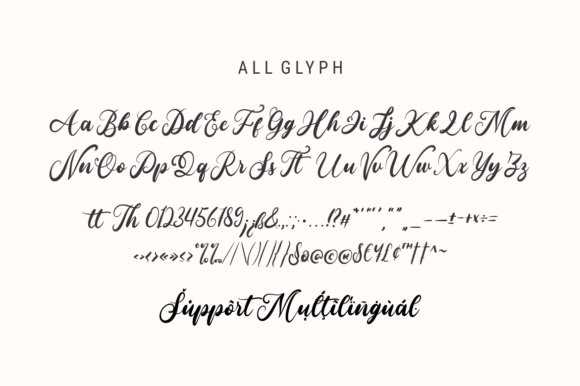 ALL GLYPH
Aa Bb Cc Dd Ee Ff Gg Hh Ii Jj Kk Ll Mm
Nn Oo Pp Qq Rr Ss Tt Uu Vv Ww Xx Yy Zz
tt Th 0123456789¡¿ß&.,:;·…!?# -–—±-+×÷=
‹›«»<>°%‰/\()[]{}§@©®$€¥£¢™†‡^~
Śúppòrt Mụĺťïlïñġùál